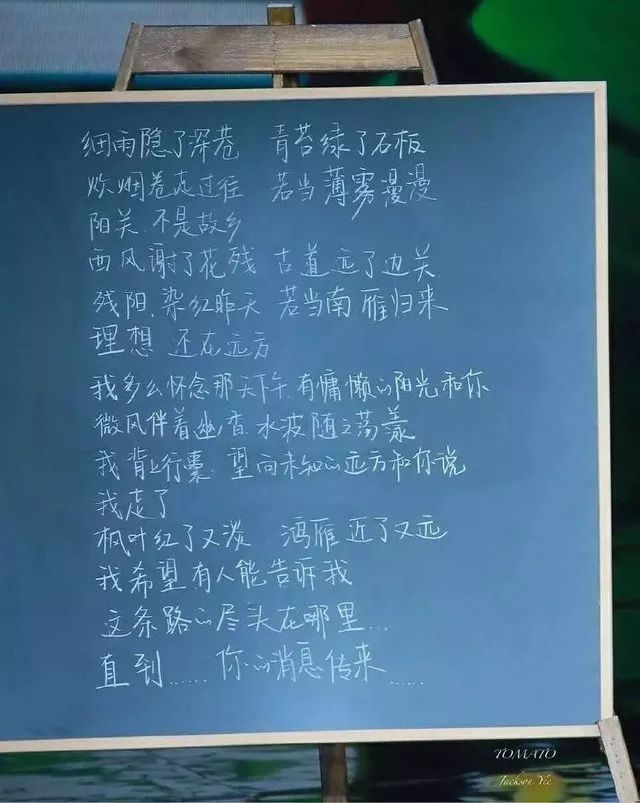 细雨隐了深巷 青苔绿了石板
炊烟卷走过往 若当薄雾漫漫
阳关.不是故乡
西风谢了花残 古道远了边关
残阳.染红昨天 若当南雁归来
理想 还在远方
我多么怀念那天下午.有慵懒的阳光和你
微风伴着幽香 水波随之荡漾
我背上行囊.望向未知的远方和你说
我走了
枫叶红了又淡 鸿雁近了又远
我希望有人能告诉我
这条路的尽头在哪里...
直到...... 你的消息传来 ......
TOMATO
Jackson Yee